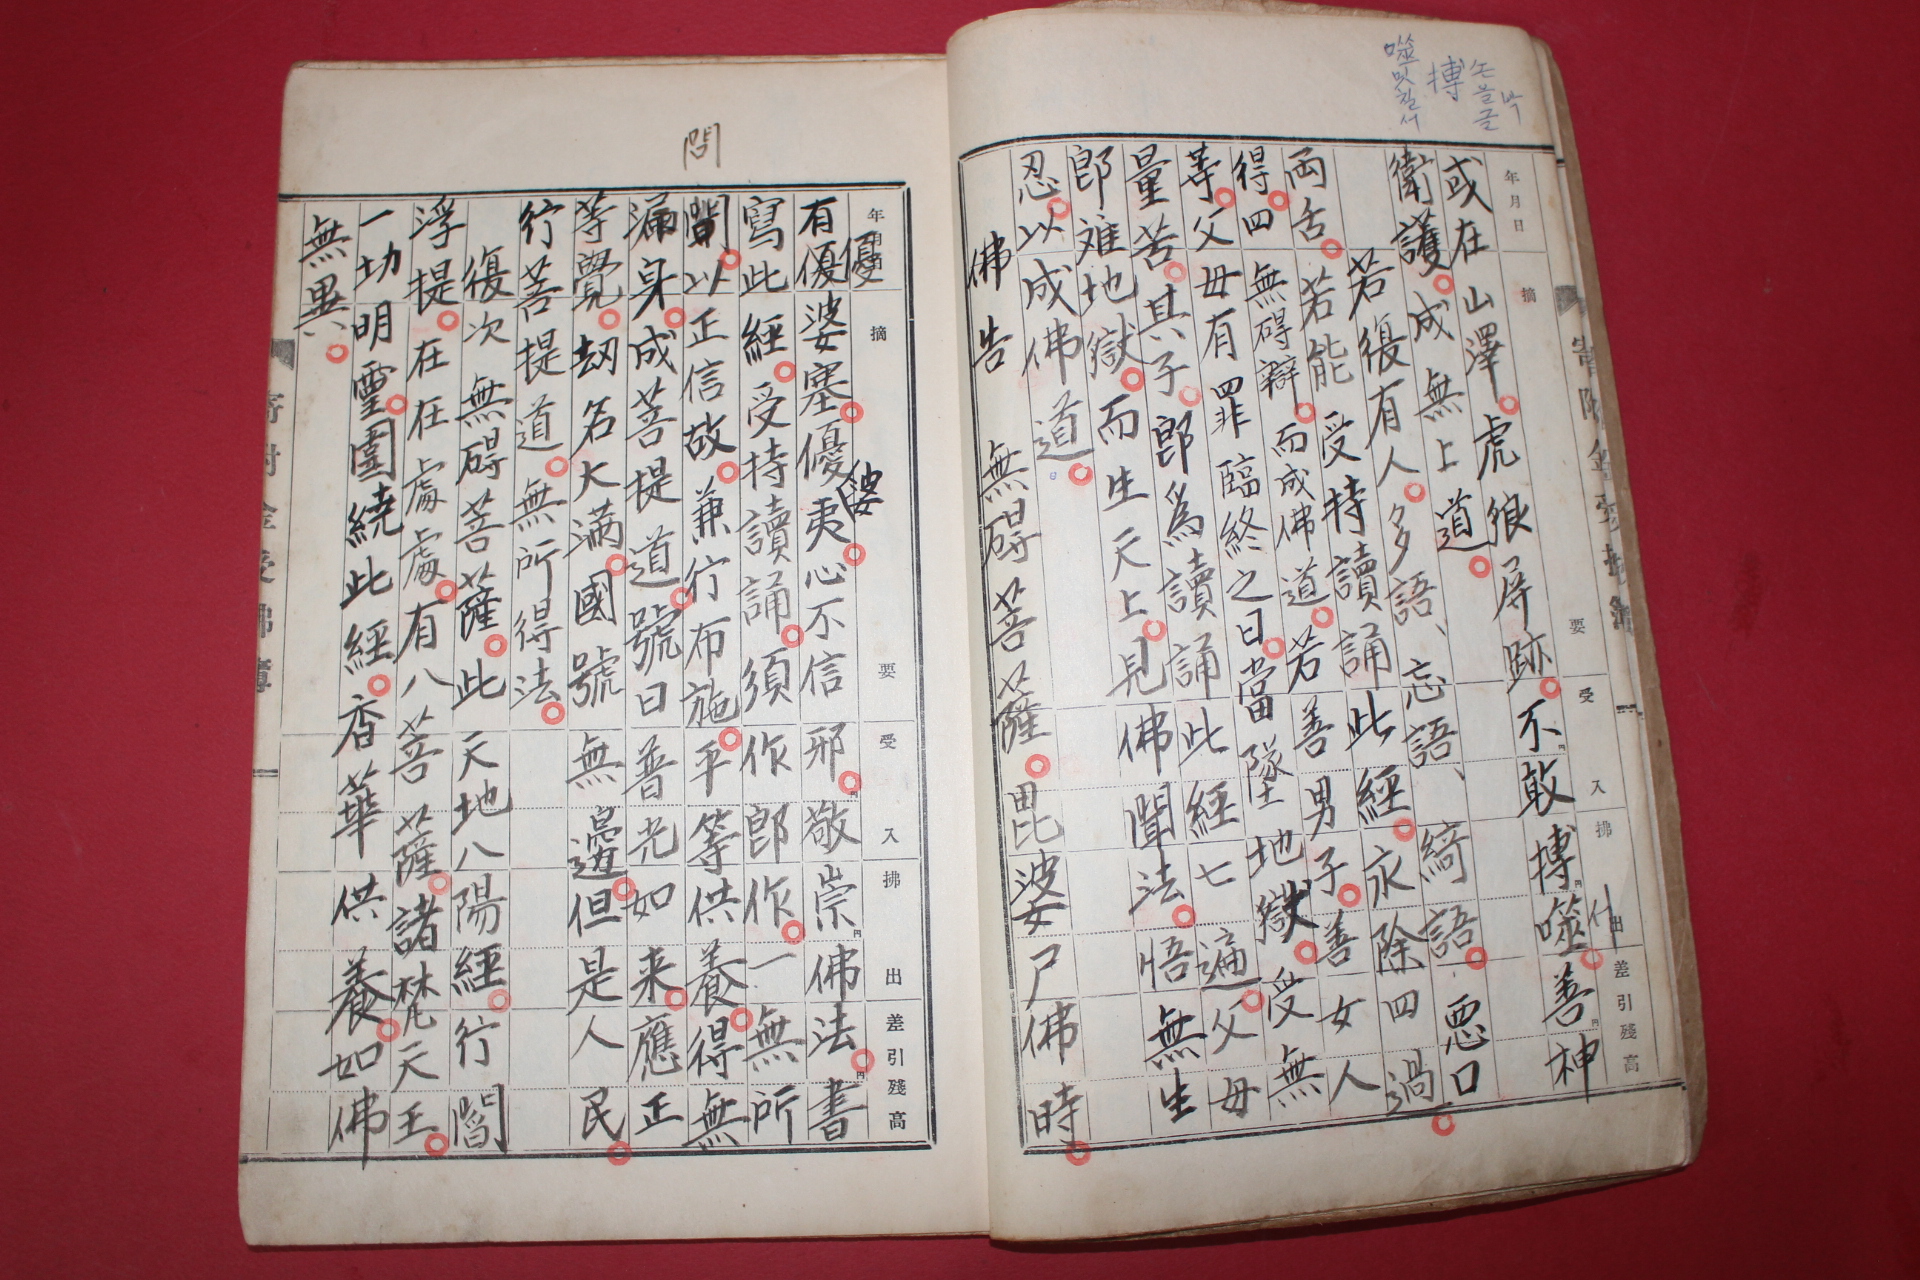 搏
年月日 摘要 受入 拂出 差引殘高
或在山澤虎狼屏跡不敢搏噬善神
衛護成無上道
若復有人多語、忘語、綺語、惡口
両舌若能受持讀誦此經永除四過
得四無碍辯而成佛道若善男子善女人
等父母有罪臨終之日當墜地獄受無
量苦其子即爲讀誦此經七遍父母
即难地獄而生天上見佛聞法悟無生
忍以成佛道
佛告無碍菩薩毘婆尸佛時
年 摘要 受入 拂出 差引殘高
優
婆
有優婆塞優夷心不信邪敬崇佛法書
寫此經受持讀誦須作即作一無所
問
聞以正信故兼行布施平等供養得無
漏身成菩提道號曰普光如来應正
等覺劫名大満國號無邊但是人民
行菩提道無所得法
復次無碍菩薩此天地八陽經行閻
浮提在在處處有八菩薩諸梵天王
一切明靈圍繞此經香華供養如佛
無異
寄附金受拂簿